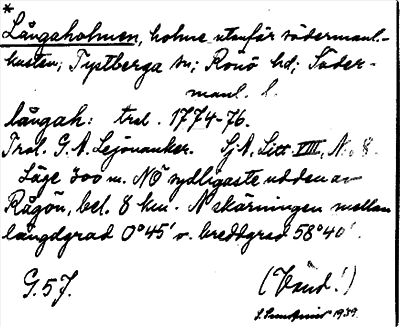 *
Långaholmen, holme utanför södermanl.-
kusten; Tystberga sn; Rönö hd; Söder-
manl. l.
långah: trol. 1774-76.
Trol. G. A. Lejonanker. SjA, Litt. VIII, No 8.
Läge 300 m. NÖ sydligaste udden av
Rågön, bel. 8 km. N skärningen mellan
längdgrad 0°45' o. breddgrad 58°40'.
G. 57. (Vänd!)
1939